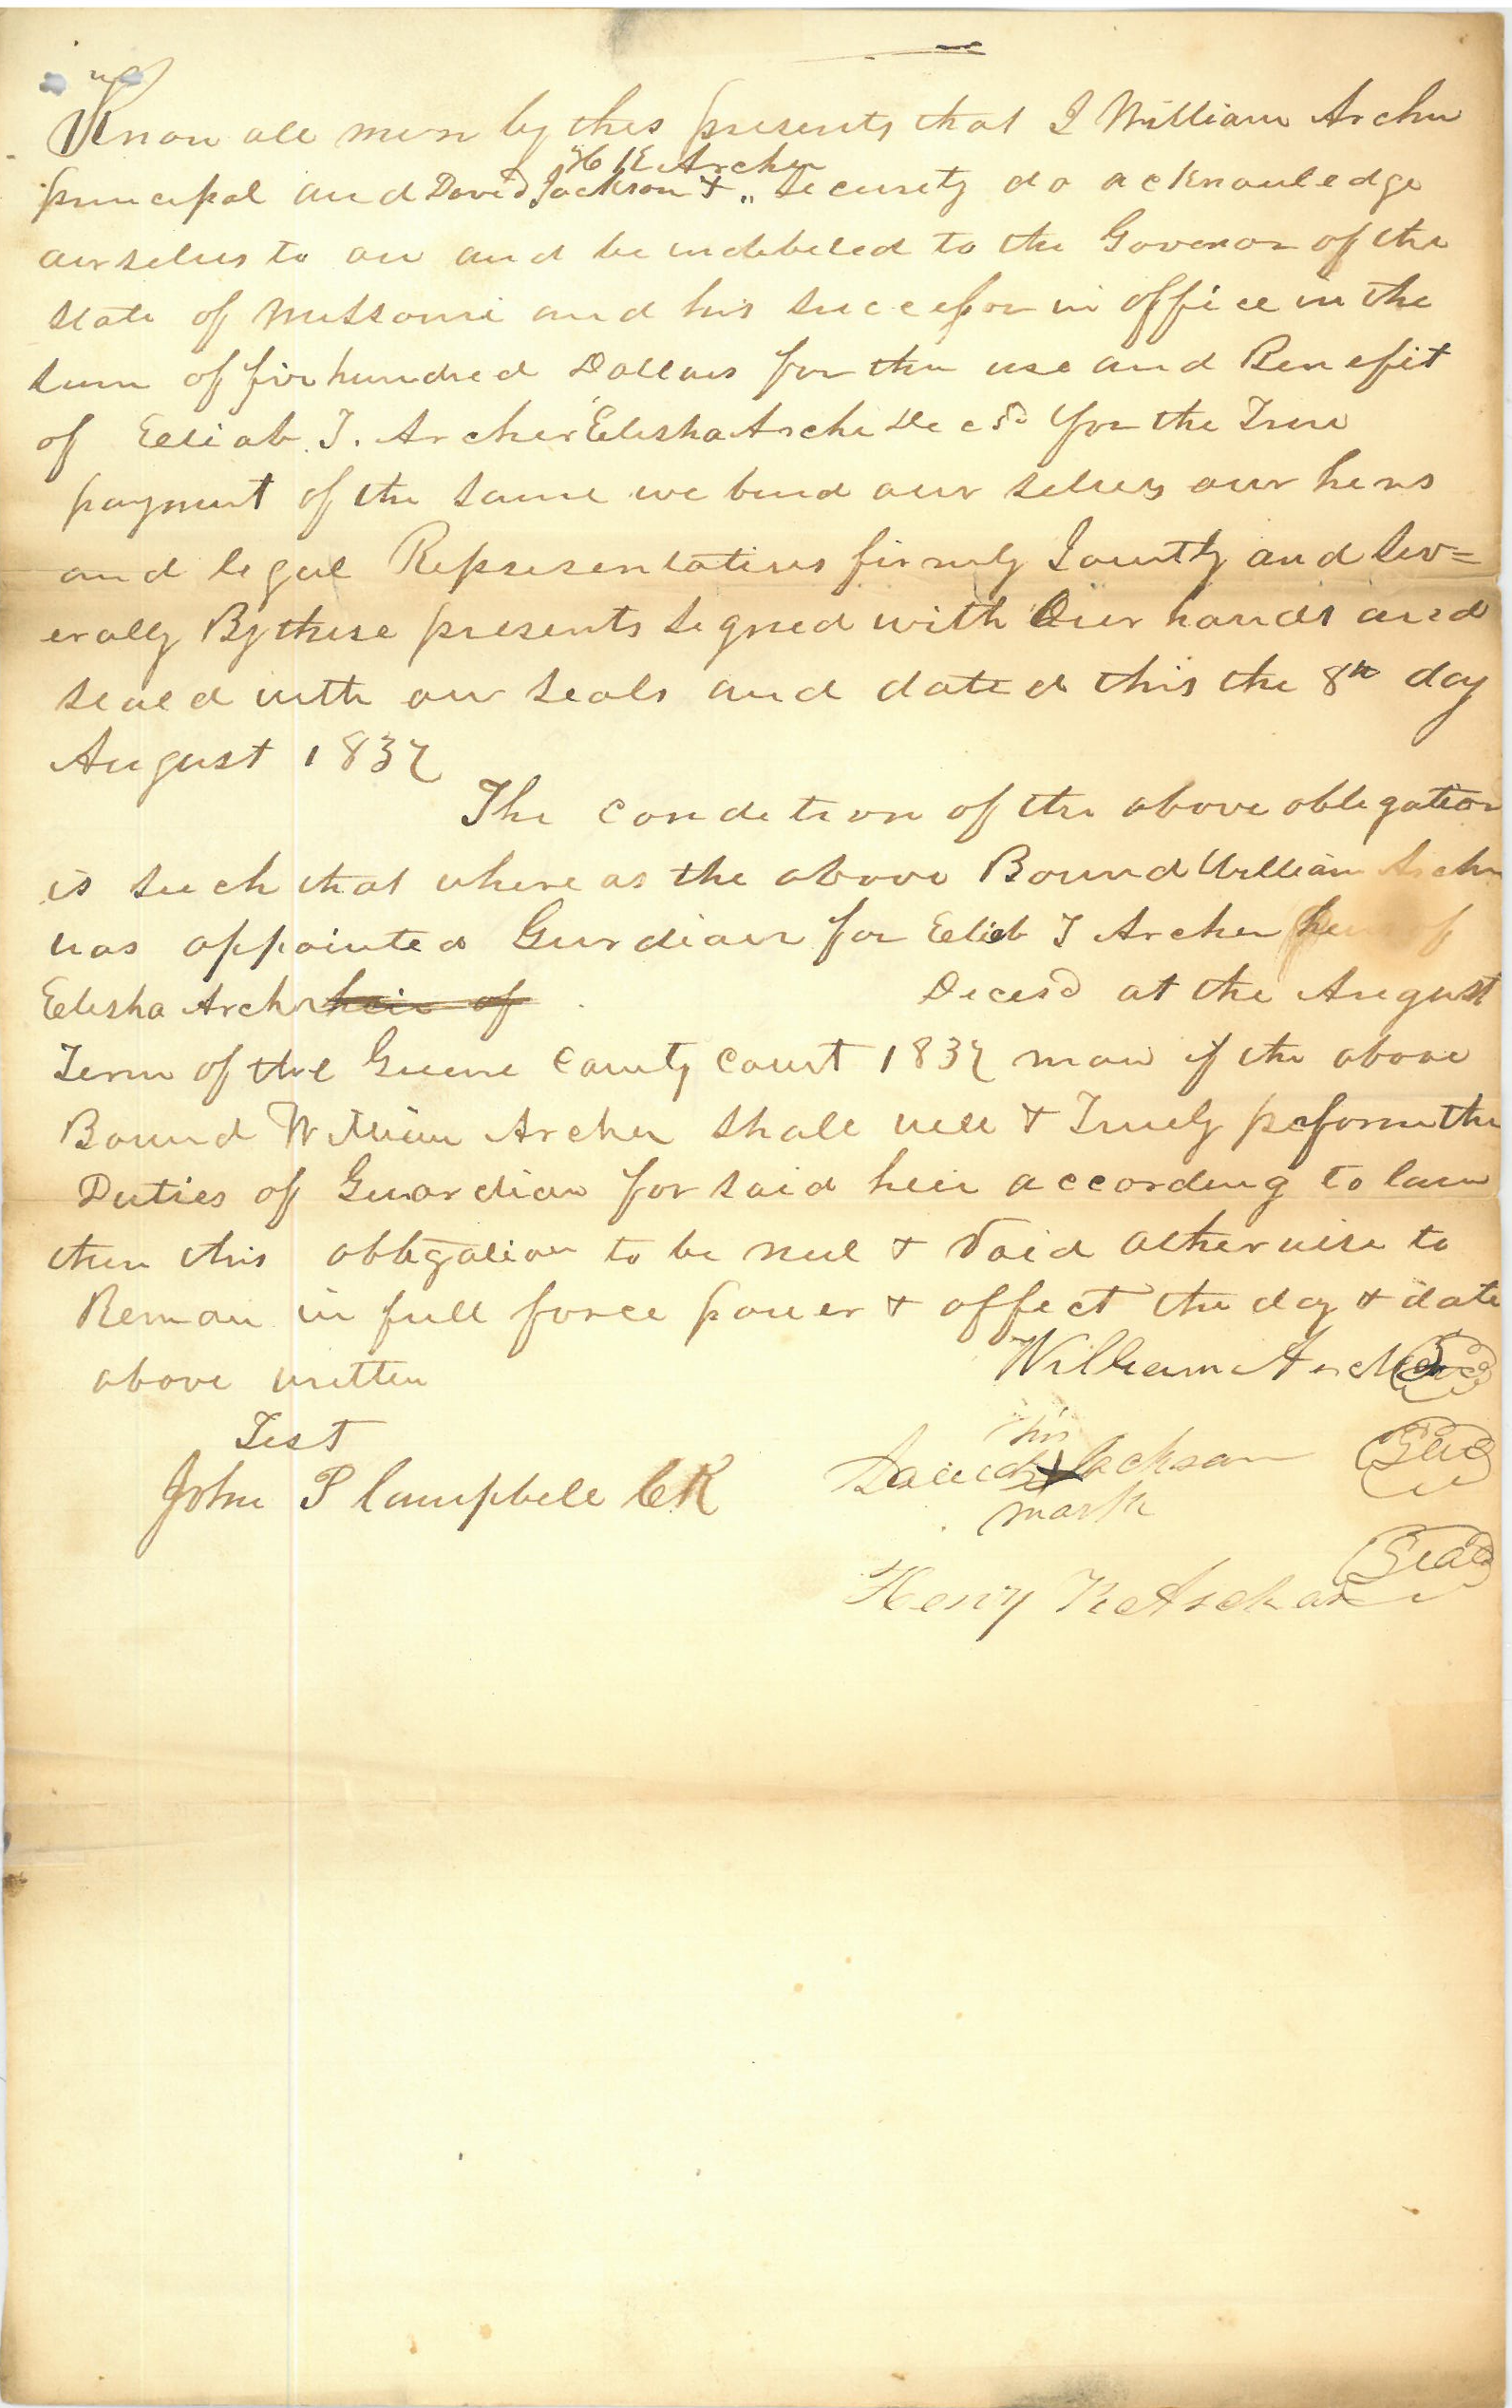 Know all men by thes presents that I William Archer
H K Archer
principal and David Jackson & " Security do acknowledge
ourselves to owe and be indebeted to the Govenor of the
State of Missouri and his successor in office in the
sum of five hundred Dollars for the use and Benefit
of Eliab T. Archer Elisha Archer Decsd for the True
payment of the same we bind our selves our heirs
and legal Representatives firmly Jointly and Sev=
erally By these presents signed with Our hands and
sealed with our seals and dated this the 8th day
August 1837
The condetion of the above obligation
is such that where as the above Bound William Archer
was appointed Gurdian for Eliab T Archer heir of
Elisha Archer heir of Decesd at the August
Term of the Greene County Court 1837 now if the above
Bound William Archer shall well & Truely peform the
Duties of Guardian for said heir according to law
then this obligation to be null & Void otherwise to
Remain in full force power & affect the day & date
above written
William Archer Seal
Test
his
David X Jackson Seal
John P Campbell CK
mark
Henry K Archer Seal